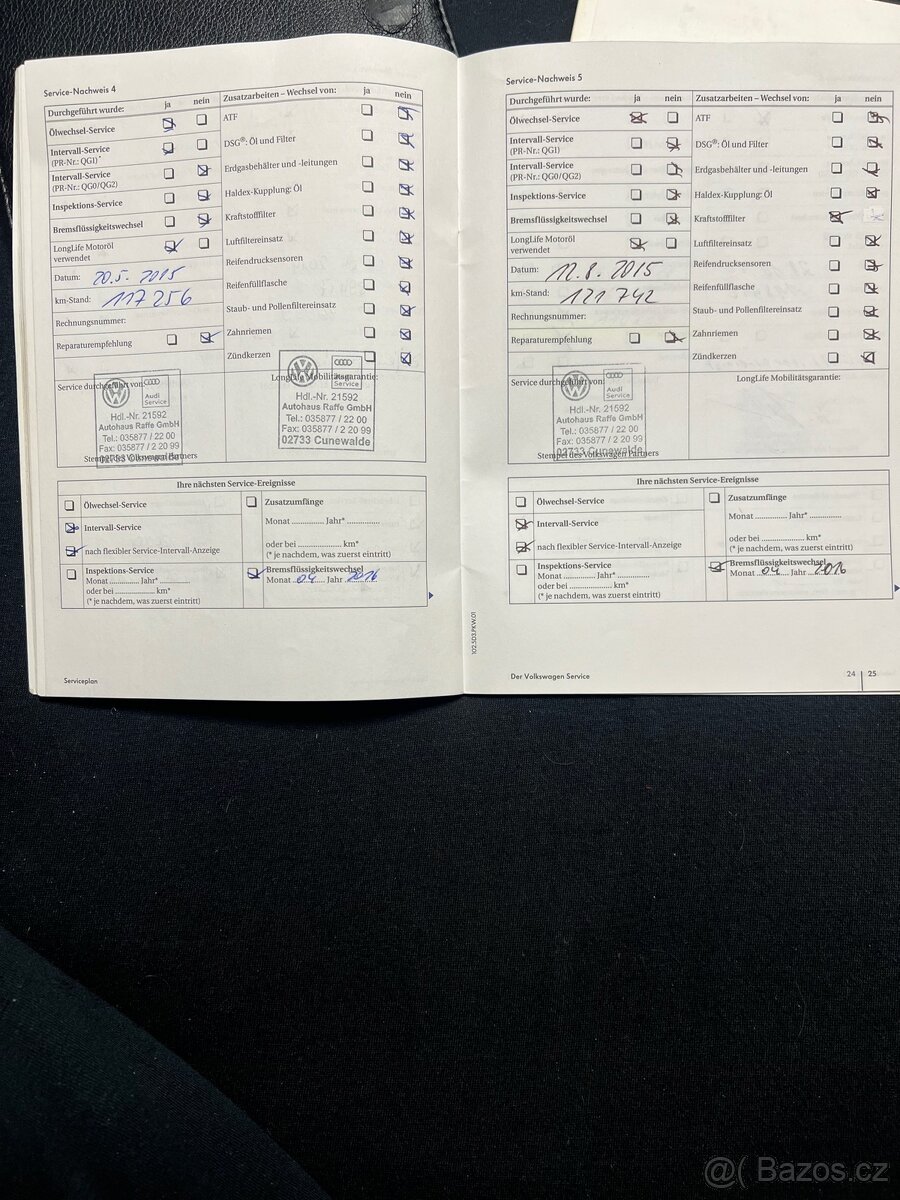 Service-Nachweis 4
Durchgeführt wurde: ja nein
Ölwechsel-Service
Intervall-Service
(PR-Nr.: QG1)*
Intervall-Service
(PR-Nr.: QG0/QG2)
Inspektions-Service
Bremsflüssigkeitswechsel
LongLife Motoröl
verwendet
Datum: 20.5. 2015
km-Stand: 117 256
Rechnungsnummer:
Reparaturempfehlung
Zusatzarbeiten – Wechsel von: ja nein
ATF
DSG®: Öl und Filter
Erdgasbehälter und -leitungen
Haldex-Kupplung: Öl
Kraftstofffilter
Luftfiltereinsatz
Reifendrucksensoren
Reifenfüllflasche
Staub- und Pollenfiltereinsatz
Zahnriemen
Zündkerzen
Service durchgeführt von:
Audi
Service
Hdl.-Nr. 21592
Autohaus Raffe GmbH
Tel.: 035877 / 22 00
Fax: 035877 / 2 20 99
02733 Cunewalde
Stempel des Volkswagen Partners
LongLife Mobilitätsgarantie:
Service
Hdl.-Nr. 21592
Autohaus Raffe GmbH
Tel.: 035877 / 22 00
Fax: 035877 / 2 20 99
02733 Cunewalde
Ihre nächsten Service-Ereignisse
Ölwechsel-Service
Intervall-Service
nach flexibler Service-Intervall-Anzeige
Inspektions-Service
Monat ............ Jahr* ............
oder bei ...................... km*
(* je nachdem, was zuerst eintritt)
Zusatzumfänge
Monat ............ Jahr* ............
oder bei ...................... km*
(* je nachdem, was zuerst eintritt)
Bremsflüssigkeitswechsel
Monat 04 Jahr 2016
Serviceplan
Service-Nachweis 5
Durchgeführt wurde: ja nein
Ölwechsel-Service
Intervall-Service
(PR-Nr.: QG1)
Intervall-Service
(PR-Nr.: QG0/QG2)
Inspektions-Service
Bremsflüssigkeitswechsel
LongLife Motoröl
verwendet
Datum: 12.8. 2015
km-Stand: 121 742
Rechnungsnummer:
Reparaturempfehlung
Zusatzarbeiten – Wechsel von: ja nein
ATF
DSG®: Öl und Filter
Erdgasbehälter und -leitungen
Haldex-Kupplung: Öl
Kraftstofffilter
Luftfiltereinsatz
Reifendrucksensoren
Reifenfüllflasche
Staub- und Pollenfiltereinsatz
Zahnriemen
Zündkerzen
Service durchgeführt von:
Audi
Service
Hdl.-Nr. 21592
Autohaus Raffe GmbH
Tel.: 035877 / 22 00
Fax: 035877 / 2 20 99
02733 Cunewalde
Stempel des Volkswagen Partners
LongLife Mobilitätsgarantie:
Ihre nächsten Service-Ereignisse
Ölwechsel-Service
Intervall-Service
nach flexibler Service-Intervall-Anzeige
Inspektions-Service
Monat ............ Jahr* ............
oder bei ...................... km*
(* je nachdem, was zuerst eintritt)
Zusatzumfänge
Monat ............ Jahr* ............
oder bei ...................... km*
(* je nachdem, was zuerst eintritt)
Bremsflüssigkeitswechsel
Monat 04 Jahr 2016
102.5D3.PKW.01
Der Volkswagen Service
24 | 25
@( Bazos.cz